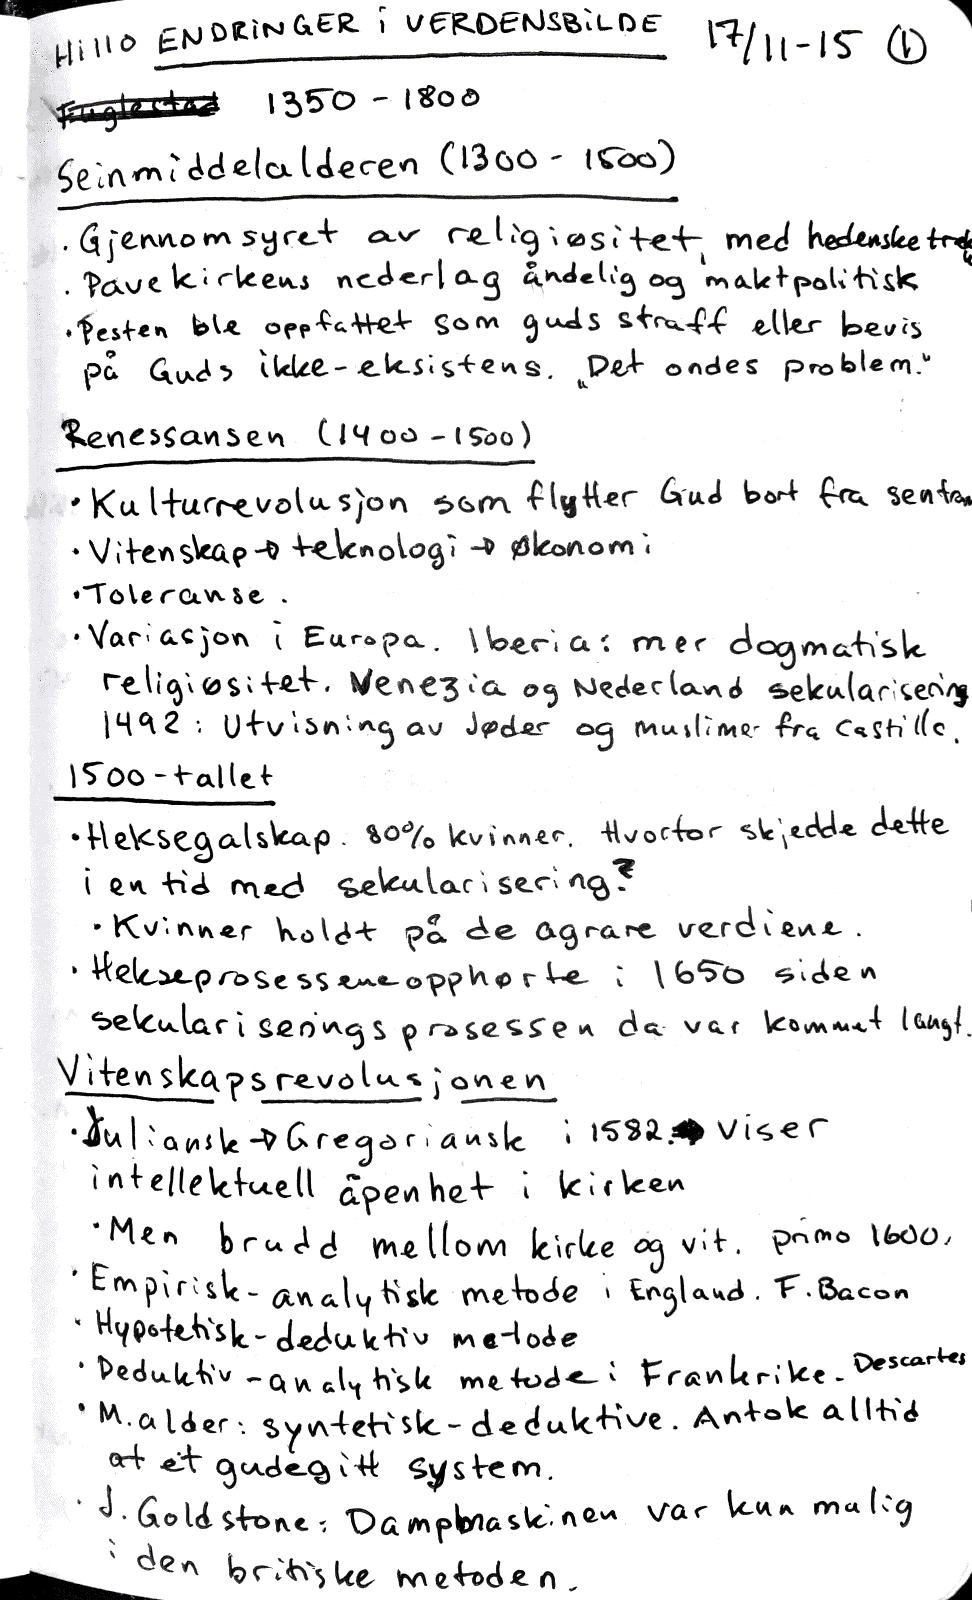 Hillo ENDRINGER i VERDENSBILDE 17/11-15 ①
Fuglestad 1350 - 1800
Seinmiddelalderen (1300 - 1500)
. Gjennomsyret av religiøsitet, med hedenske trekk
. Pavekirkens nederlag åndelig og maktpolitisk
. Pesten ble oppfattet som guds straff eller bevis
på Guds ikke-eksistens. „Det ondes problem."
Renessansen (1400 - 1500)
· Kulturrevolusjon som flytter Gud bort fra sentrum
· Vitenskap → teknologi → Økonomi
· Toleranse.
· Variasjon i Europa. Iberia: mer dogmatisk
religiøsitet. Venezia og Nederland sekularisering
1492: Utvisning av Jøder og muslimer fra Castille.
1500-tallet
· Heksegalskap. 80% kvinner. Hvorfor skjedde dette
i en tid med sekularisering?
· Kvinner holdt på de agrare verdiene.
· Hekseprosessene opphørte i 1650 siden
sekulariseringsprosessen da var kommet langt.
Vitenskapsrevolusjonen
· Juliansk → Gregoriansk i 1582. → Viser
intellektuell åpenhet i kirken
· Men brudd mellom kirke og vit. primo 1600.
· Empirisk-analytisk metode i England. F. Bacon
· Hypotetisk-deduktiv metode
· Deduktiv-analytisk metode i Frankrike. Descartes
· M.alder: syntetisk-deduktive. Antok alltid
at et gudegitt system.
· J. Goldstone: Dampmaskinen var kun mulig
i den britiske metoden.